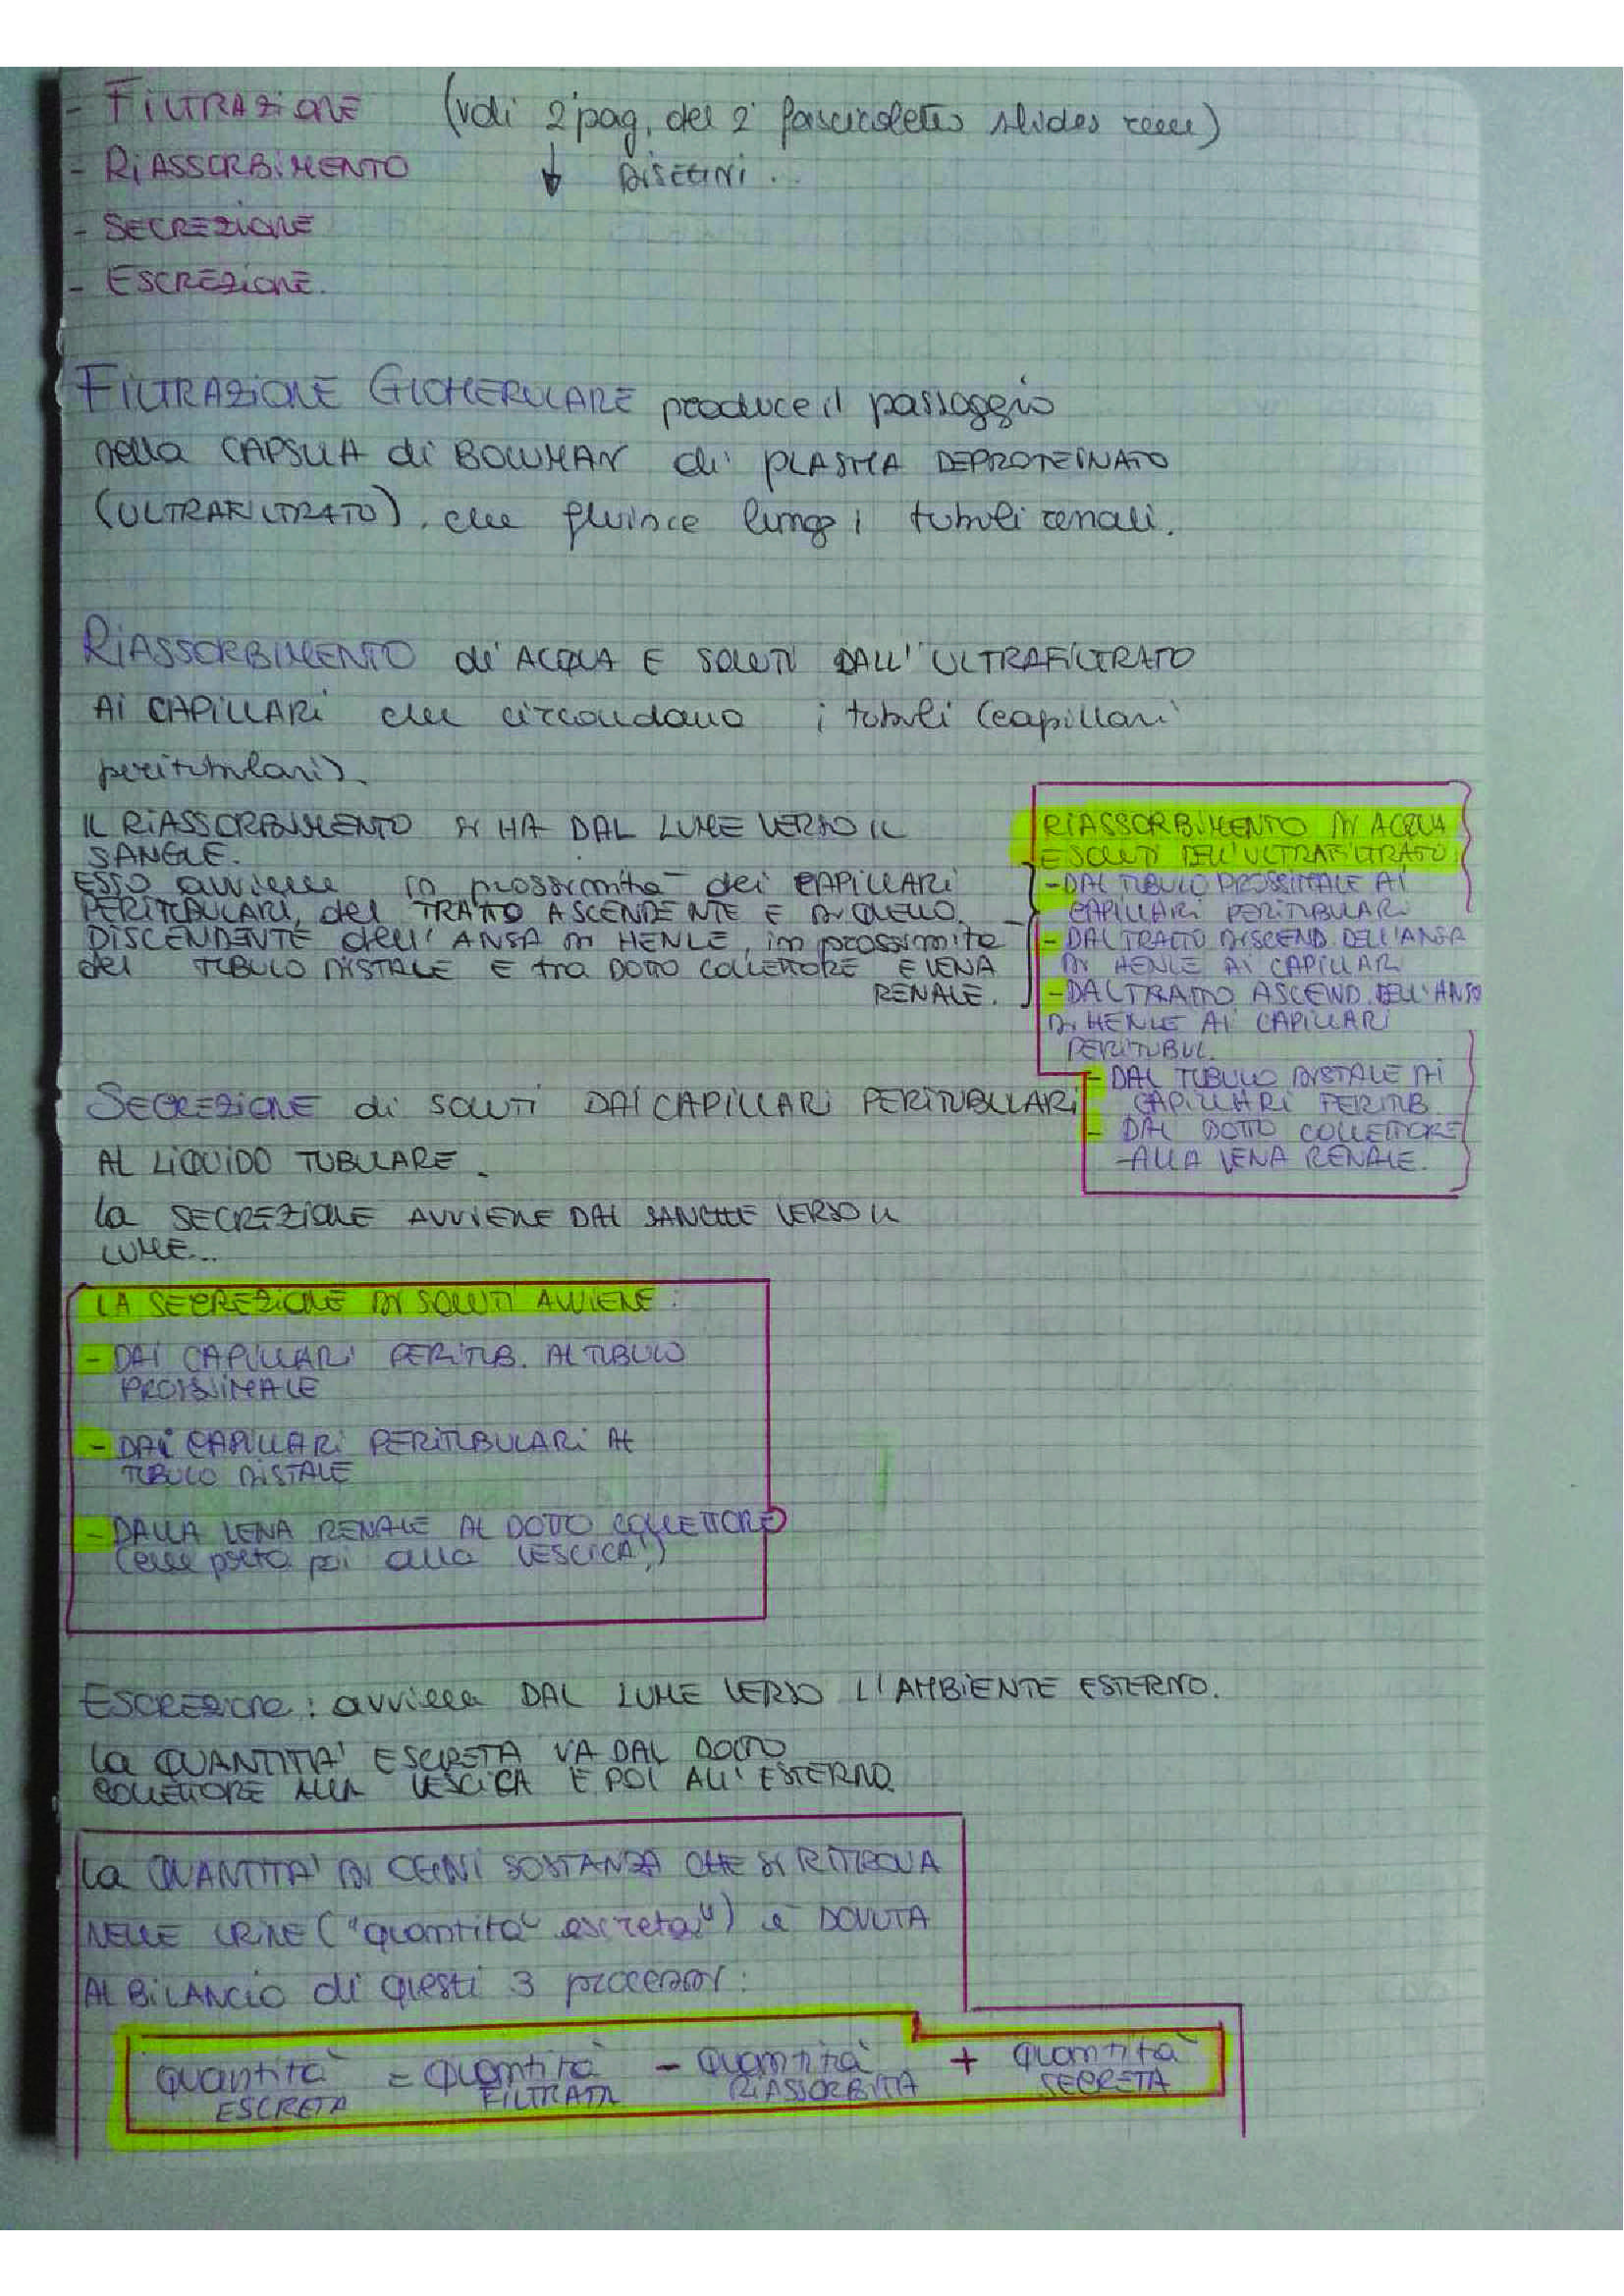 - FILTRAZIONE (vedi 2ª pag. del 2° fascicoletto slides rene)
- RIASSORBIMENTO ↓ DISEGNI...
- SECREZIONE
- ESCREZIONE.
FILTRAZIONE GLOMERULARE produce il passaggio
nella CAPSULA di BOWMAN di PLASMA DEPROTEINATO
(ULTRAFILTRATO), che fluisce lungo i tubuli renali.
RIASSORBIMENTO di ACQUA E SOLUTI DALL'ULTRAFILTRATO
AI CAPILLARI che circondano i tubuli (capillari
peritubulari).
IL RIASSORBIMENTO SI HA DAL LUME VERSO IL
SANGUE.
ESSO avviene in prossimità dei CAPILLARI
PERITUBULARI, del TRATTO ASCENDENTE E DI QUELLO
DISCENDENTE dell'ANSA DI HENLE, in prossimità
del TUBULO DISTALE E tra DOTTO COLLETTORE E VENA
RENALE.
RIASSORBIMENTO DI ACQUA
E SOLUTI DELL'ULTRAFILTRATO:
- DAL TUBULO PROSSIMALE AI
CAPILLARI PERITUBULARI
- DAL TRATTO DISCEND. DELL'ANSA
DI HENLE AI CAPILLARI
- DAL TRATTO ASCEND. DELL'ANSA
DI HENLE AI CAPILLARI
PERITUBUL.
- DAL TUBULO DISTALE AI
CAPILLARI PERITUB.
- DAL DOTTO COLLETTORE
-ALLA VENA RENALE.
SECREZIONE di SOLUTI DAI CAPILLARI PERITUBULARI
AL LIQUIDO TUBULARE.
La SECREZIONE AVVIENE DAL SANGUE VERSO IL
LUME...
LA SECREZIONE DI SOLUTI AVVIENE:
- DAI CAPILLARI PERITUB. AL TUBULO
PROSSIMALE
- DAI CAPILLARI PERITUBULARI AL
TUBULO DISTALE
- DALLA VENA RENALE AL DOTTO COLLETTORE
(che porta poi alla VESCICA!)
ESCREZIONE: avviene DAL LUME VERSO L'AMBIENTE ESTERNO.
La QUANTITA' ESCRETA VA DAL DOTTO
COLLETTORE ALLA VESCICA E POI ALL'ESTERNO.
La QUANTITA' DI OGNI SOSTANZA CHE SI RITROVA
NELLE URINE ("quantità escreta") è DOVUTA
AL BILANCIO di questi 3 processi:
quantità = quantità - quantità + quantità
ESCRETA FILTRATA RIASSORBITA SECRETA